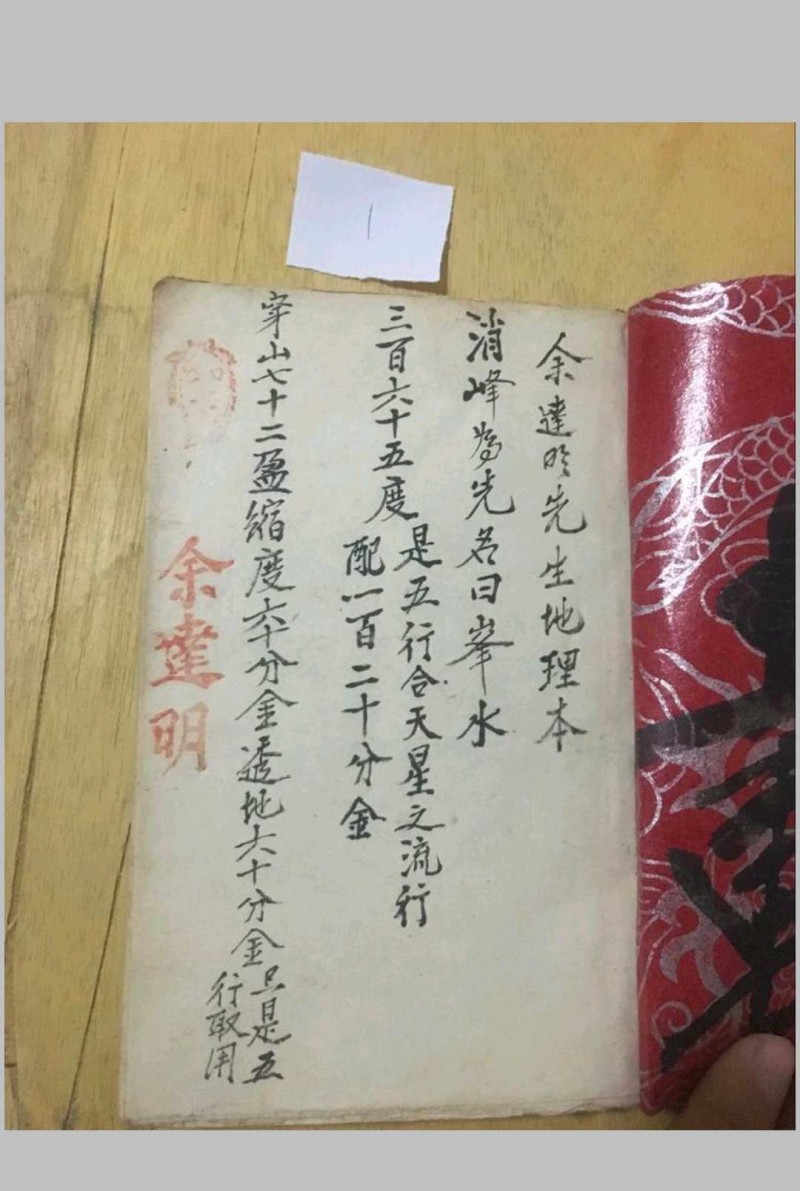 余達明先生地理本
消峰為先名曰峯水
三百六十五度是五行合天星之流行
配一百二十分金
穿山七十二盈縮度六十分金透地六十分金只是五
行取用
余達明
1